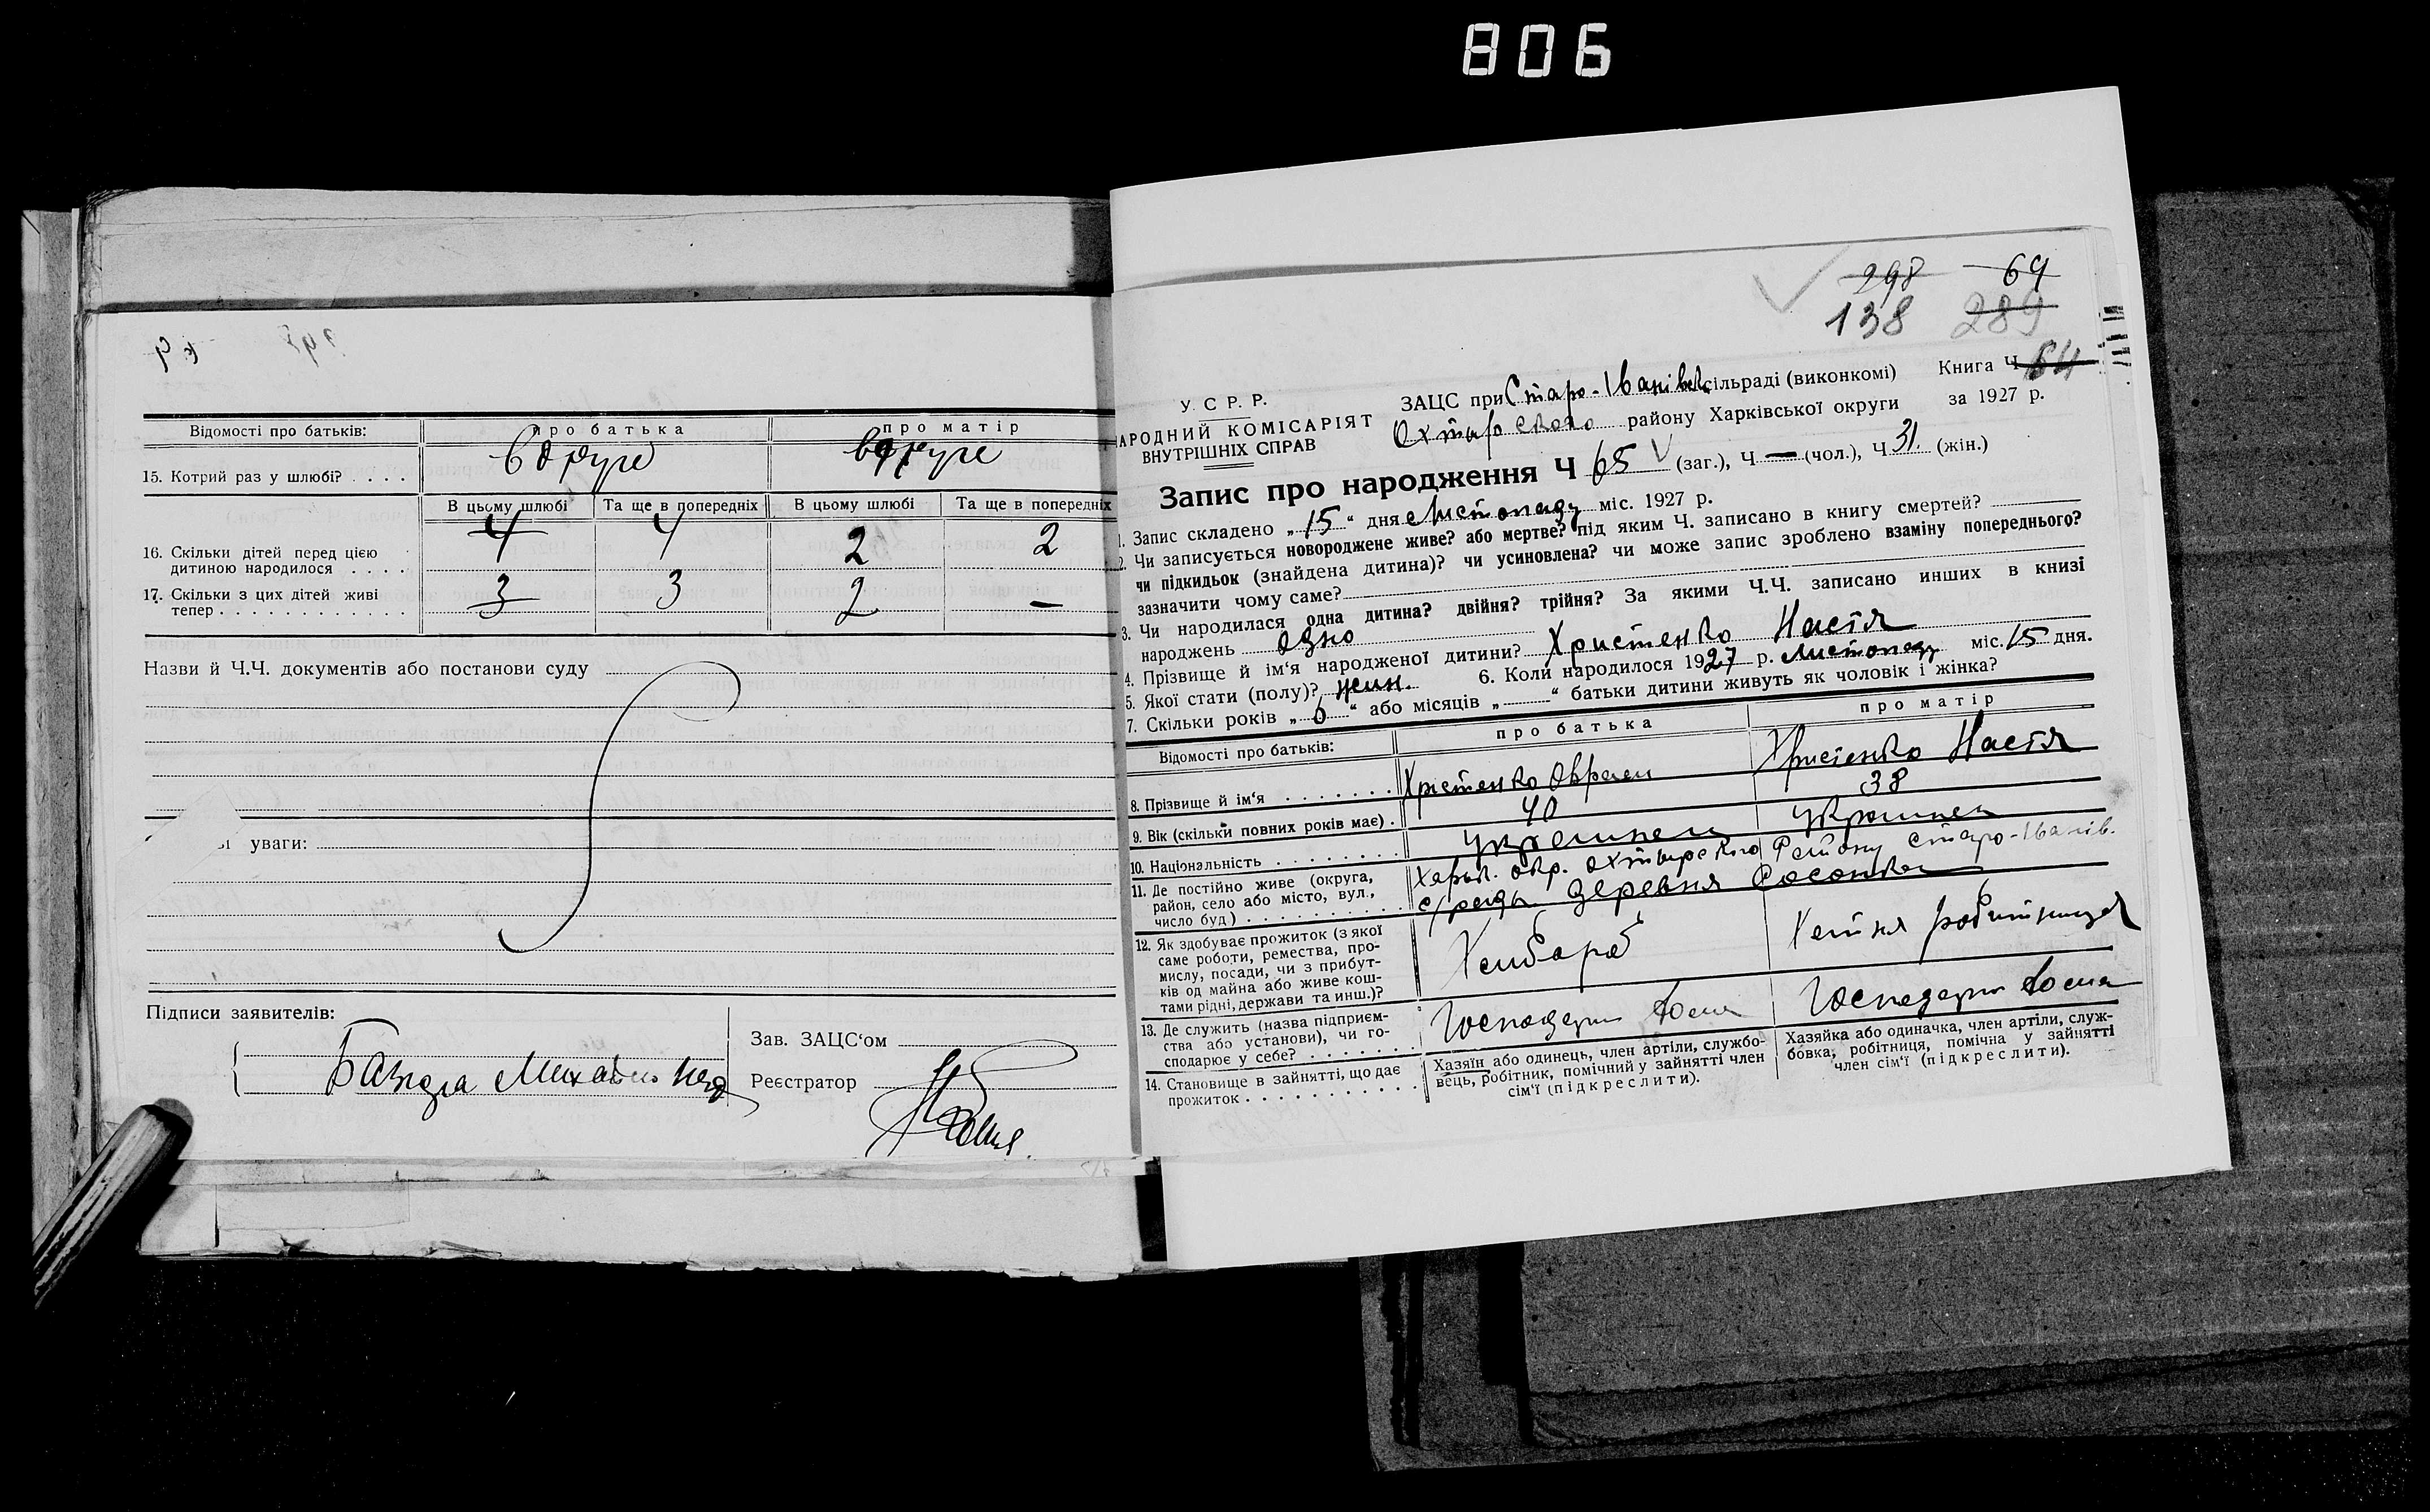 806
Відомості про батьків: про батька про матір
15. Котрий раз у шлюбі? . . . . вдруге вдруге
В цьому шлюбі Та ще в попередніх В цьому шлюбі Та ще в попередніх
16. Скільки дітей перед цією
дитиною народилося . . . . 4 4 2 2
17. Скільки з цих дітей живі
тепер . . . . . . . . . . . 3 3 2 —
Назви й Ч.Ч. документів або постанови суду
уваги:
Підписи заявителів:
Зав. ЗАЦС‘ом
Реєстратор
298 64
138 289
У. С Р. Р.
НАРОДНИЙ КОМІСАРІЯТ
ВНУТРІШНІХ СПРАВ
ЗАЦС при Старо-Іванівск сільраді (виконкомі) Книга Ч 64
Охтирського району Харківської округи за 1927 р.
Запис про народження Ч 65 (заг.), Ч — (чол.), Ч 31. (жін.)
1. Запис складено „15“ дня Листопаду міс. 1927 р.
2. Чи записується новороджене живе? або мертве? під яким Ч. записано в книгу смертей?
чи підкидьок (знайдена дитина)? чи усиновлена? чи може запис зроблено взаміну попереднього?
зазначити чому саме?
3. Чи народилася одна дитина? двійня? трійня? За якими Ч.Ч. записано инших в книзі
народжень одно
4. Прізвище й ім‘я народженої дитини? Христенко Настя
5. Якої стати (полу)? жин. 6. Коли народилося 1927 р. Листопаду міс. 15 дня.
7. Скільки років „6“ або місяців „ “ батьки дитини живуть як чоловік і жінка?
Відомості про батьків: про батька про матір
8. Прізвище й ім‘я . . . . . . . Христенко Христенко Настя
9. Вік (скільки повних років має) . 40 38
10. Національність . . . . . . . . украинец украинка
11. Де постійно живе (округа, Харьк. окр. Охтирского Району Старо-Іванів.
район, село або місто, вул., с/ради деревня
число буд) . . . . . . . . . .
12. Як здобуває прожиток (з якої Хлибороб Хатня робитниця
саме роботи, ремества, про-
мислу, посади, чи з прибут-
ків од майна або живе кош-
тами рідні, держави та инш.)?
13. Де служить (назва підприєм- Господарни дома Господарни дома
ства або установи), чи го-
сподарює у себе? . . . . . . .
14. Становище в зайнятті, що дає
прожиток . . . . . . . . . .
Хазяїн або одинець, член артіли, службо-
вець, робітник, помічний у зайнятті член
сім‘ї (підкреслити).
Хазяйка або одиначка, член артіли, служ-
бовка, робітниця, помічна у зайнятті
член сім‘ї (підкреслити).